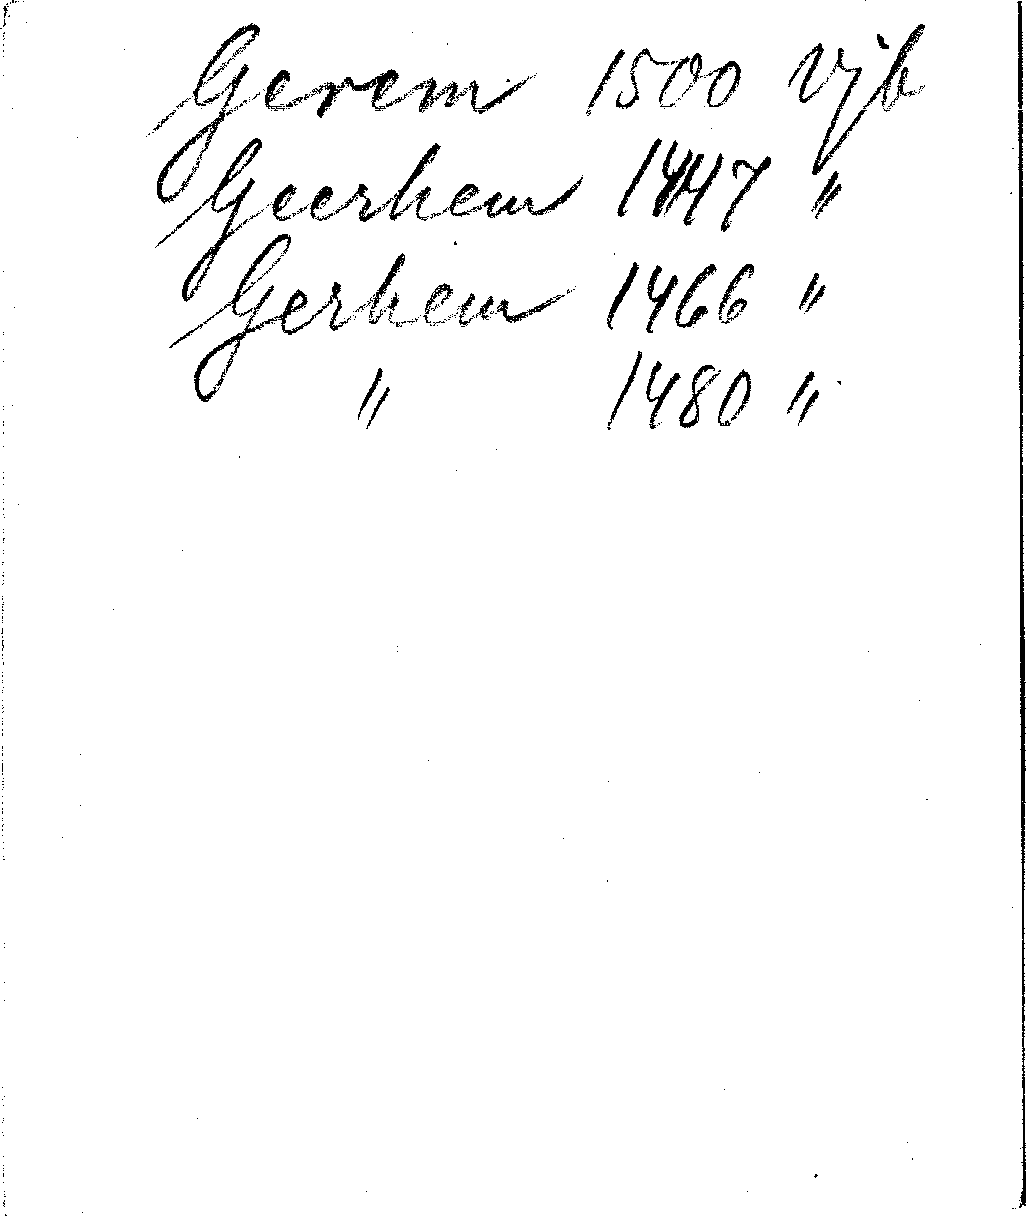 Gerem 1500 Vjb
Geerhem 1447 "
Gerhem 1466 "
" 1480 "